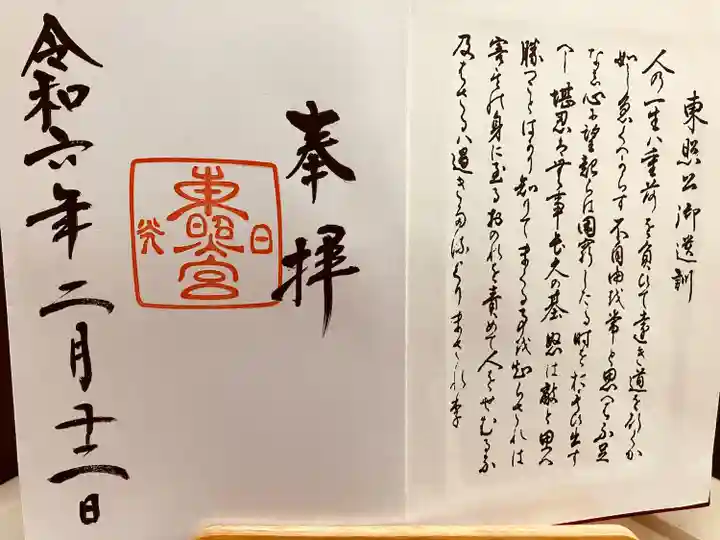 東照公御遺訓
人の一生は重荷を負ひて遠き道を行くか
如し急くへからす不自由を常と思へは不足
なし心に望起らは困窮したる時を思ひ出す
へし堪忍は無事長久の基怒は敵と思へ
勝ことはかり知りてまくる事を知らされは
害其の身に至るおのれを責めて人をせむるな
及はさるは過きたるよりまされり
奉拝
日光
東照宮
令和六年二月十二日